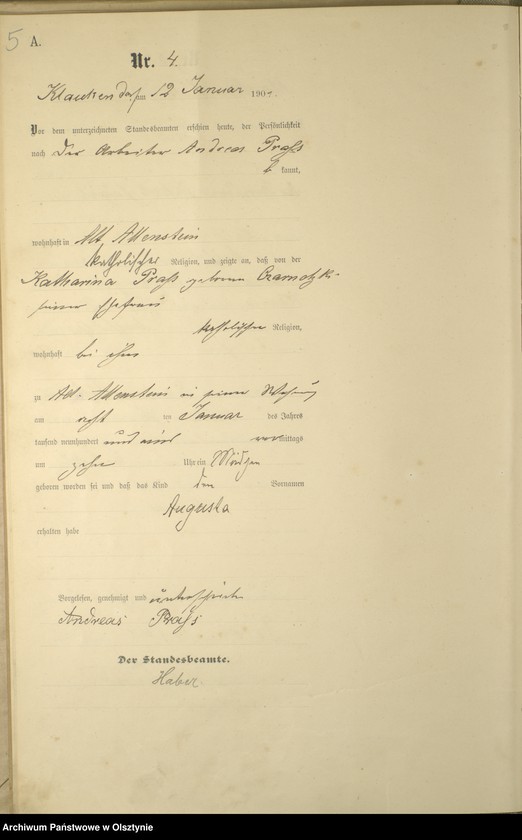 5 A.
Nr. 4.
Klaukendorf am 12 Januar 190
Vor dem unterzeichneten Standesbeamten erschien heute, der Persönlichkeit
nach der Arbeiter Andreas Prass
b kannt,
wohnhaft in Alt Allenstein
katholischer Religion, und zeigte an, daß von der
Katharina Prass geborene
seiner Ehefrau
katholischer Religion,
wohnhaft bei ihm
zu Alt-Allenstein in seiner Wohnung
am acht ten Januar des Jahres
tausend neunhundert und vormittags
um zehn Uhr ein Mädchen
geboren worden sei und daß das Kind den Vornamen
Augusta
erhalten habe
Vorgelesen, genehmigt und unterschrieben
Andreas Prass
Der Standesbeamte.
Haber
Archiwum Państwowe w Olsztynie